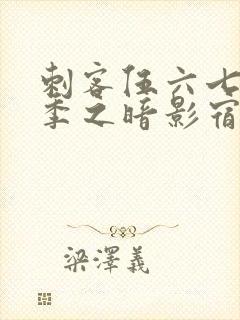 刺客伍六七
季之暗影宿
梁澤義